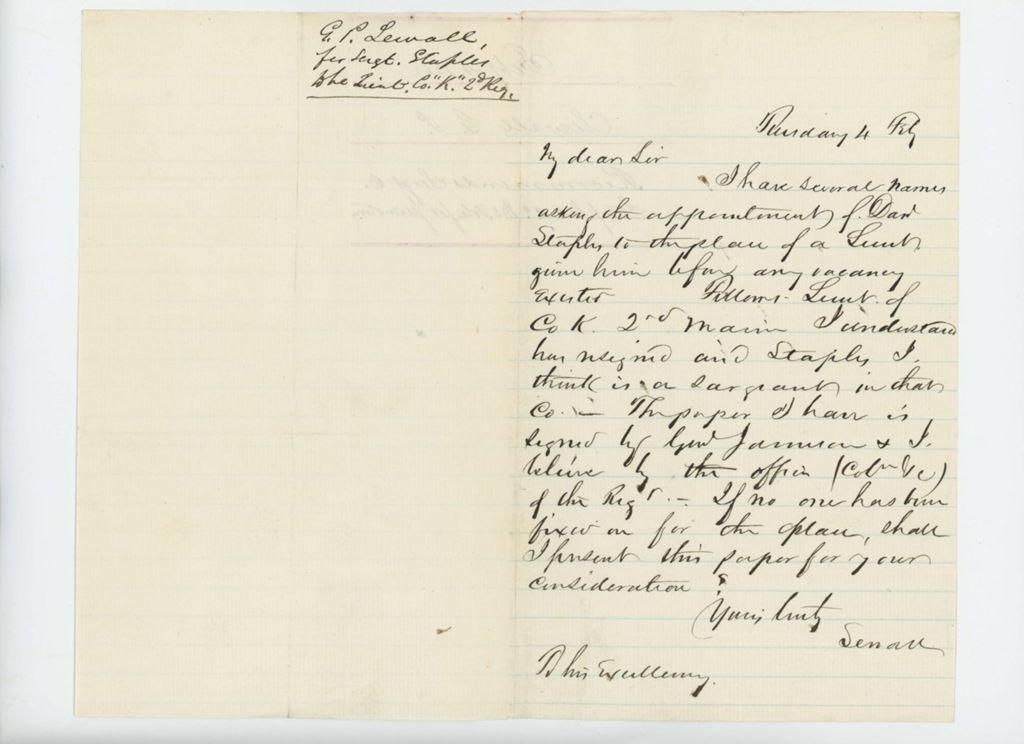 G. P. Sewall,
for Sergt. Staples
to be Lieut. Co. "K." 2d Reg.
Tuesday 4 Feb
My dear Sir
I have several names
asking the appointment of Davd
Staples to the place of a Lieut
given him before any vacancy
existed Lieut. of
Co K. 2nd Maine I understand
has resigned and Staples I
think is a sargeant in that
Co. — The paper I have is
signed by Genl Jameson & I
believe by the officers (Coln &c)
of the Regt. — If no one has been
fixed on for the place, shall
I present this paper for your
consideration ?
Yours truly
Sewall
To his Excellency.